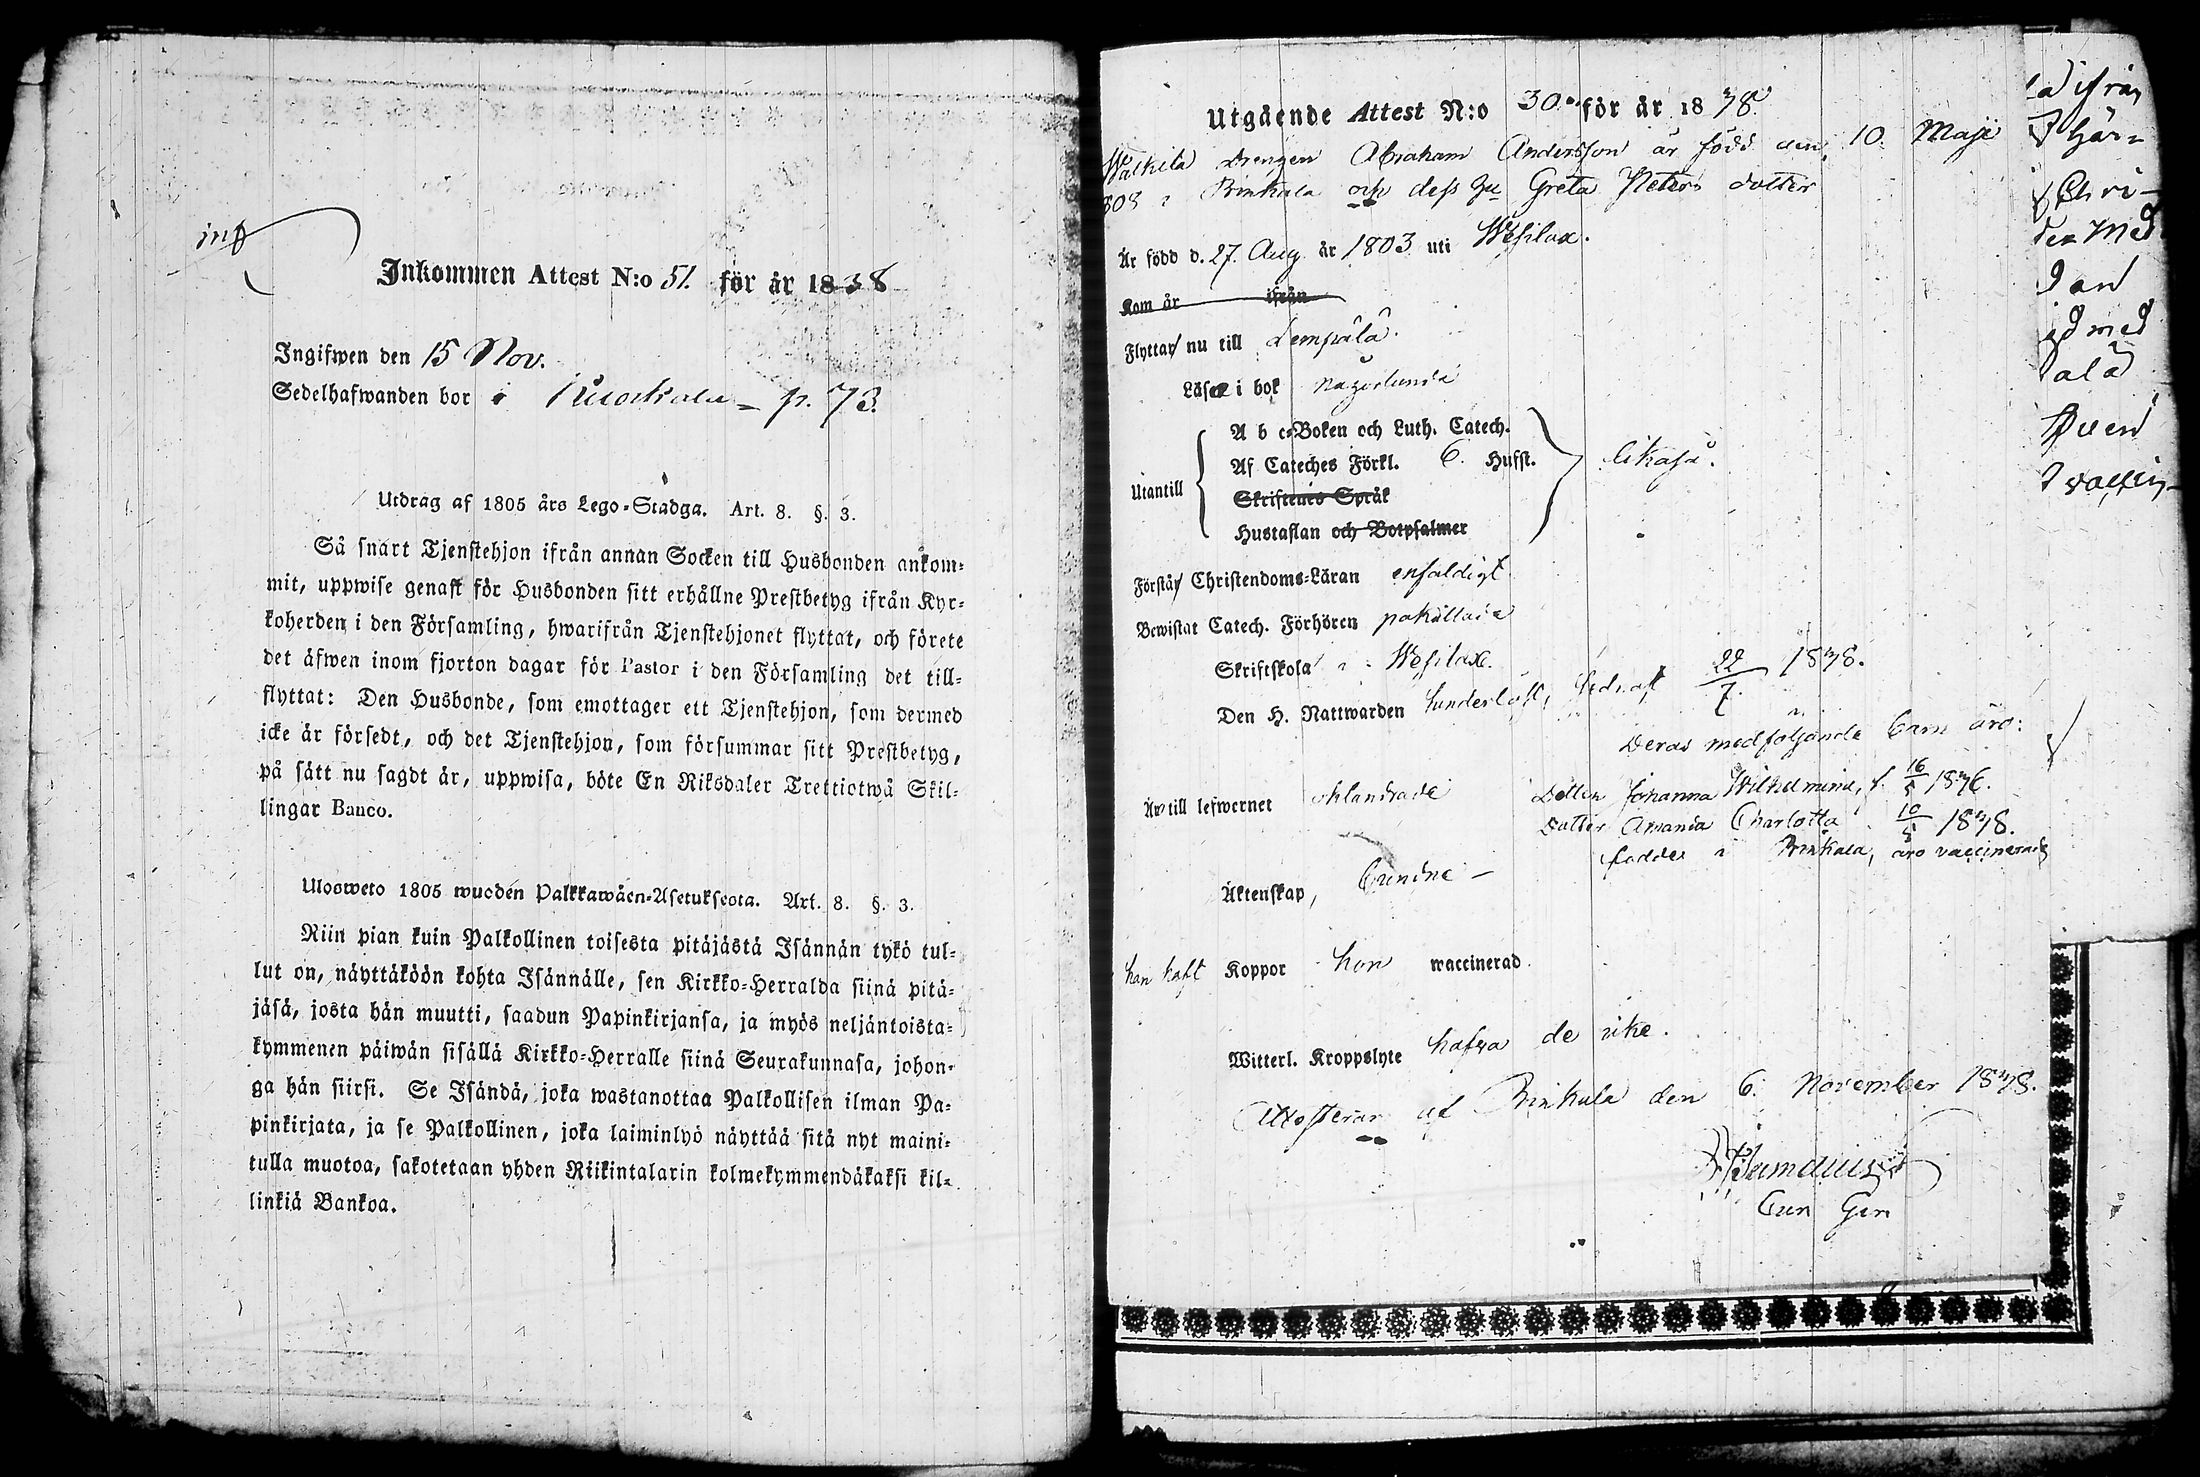 inf
Inkommen Attest N:o 51. för år 1838
Ingifwen den 15 Nov.
Sedelhafwanden bor i Kuokala – p. 73.
Utdrag af 1805 års Lego-Stadga. Art. 8. §. 3.
Så snart Tjenstehjon ifrån annan Socken till Husbonden ankom-
mit, uppwise genast för Husbonden sitt erhållne Prestbetyg ifrån Kyr-
koherden i den Församling, hwarifrån Tjenstehjonet flyttat, och förete
det äfwen inom fjorton dagar för Pastor i den Församling det till-
flyttat: Den Husbonde, som emottager ett Tjenstehjon, som dermed
icke är försedt, och det Tjenstehjon, som försummar sitt Prestbetyg,
på sätt nu sagdt är, uppwisa, böte En Riksdaler Trettiotwå Skil-
lingar Banco.
Ulosweto 1805 wuoden Palkkawäen-Asetuksesta. Art. 8. §. 3.
Niin pian kuin Palkollinen toisesta pitäjästä Isännän tykö tul-
lut on, näyttäköön kohta Isännälle, sen Kirkko-Herralda siinä pitä-
jäsä, josta hän muutti, saadun Papinkirjansa, ja myös neljäntoista-
kymmenen päiwän sisällä Kirkko-Herralle siinä Seurakunnasa, johon-
ga hän siirsi. Se Isändä, joka wastanottaa Palkollisen ilman Pa-
pinkirjata, ja se Palkollinen, joka laiminlyö näyttää sitä nyt maini-
tulla muotoa, sakotetaan yhden Riikintalarin kolmekymmendäkaksi kil-
linkiä Bankoa.
Utgående Attest N:o 30. för år 1838.
Walkila Drengen Abraham Andersson är född den 10. Maji
808 i Brinkala och dess hu Greta Peters dotter
Är född d. 27. Aug. år 1803 uti Wesilax.
Kom år ifrån
Flyttar nu till Lempälä.
Läser i bok någorlunda
Utantill
A b c-Boken och Luth. Catech.
Af Cateches Förkl. 6. Hufst.
Skriftenes Språk
Hustaflan och Botpsalmer
likaså.
Förstår Christendoms-Läran enfaldigt
Bewistat Catech. Förhören påkallade
Skriftskola i Wesilax.
Den H. Nattwarden sednast 22/7. 1838.
Deras medföljande Barn äro:
Är till lefwernet oklandrade
Dotter Johanna Wilhelmina, f. 16/5 1836.
Dotter Amanda Charlotta 10/5 1838.
födde i Brinkala, äro vaccinerade
Äktenskap, bundne –
han haft Koppor hon waccinerad.
Witterl. Kroppslyte hafva de icke.
Attesterar af Brinkala den 6. November 1838.
ifrån